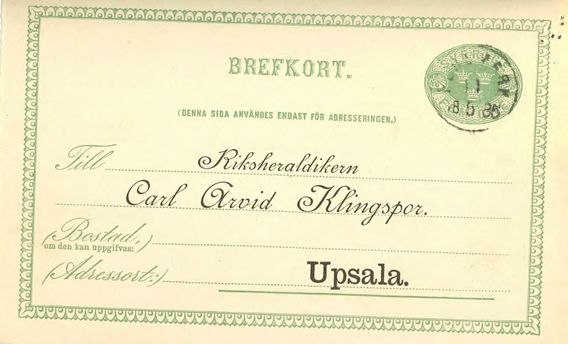 BREFKORT.
(DENNA SIDA ANVÄNDES ENDAST FÖR ADRESSERINGEN.)
Till Riksheraldikern
Carl Arvid Klingspor.
(Bostad,)
om den kan uppgifvas:
(Adressort:) Upsala.